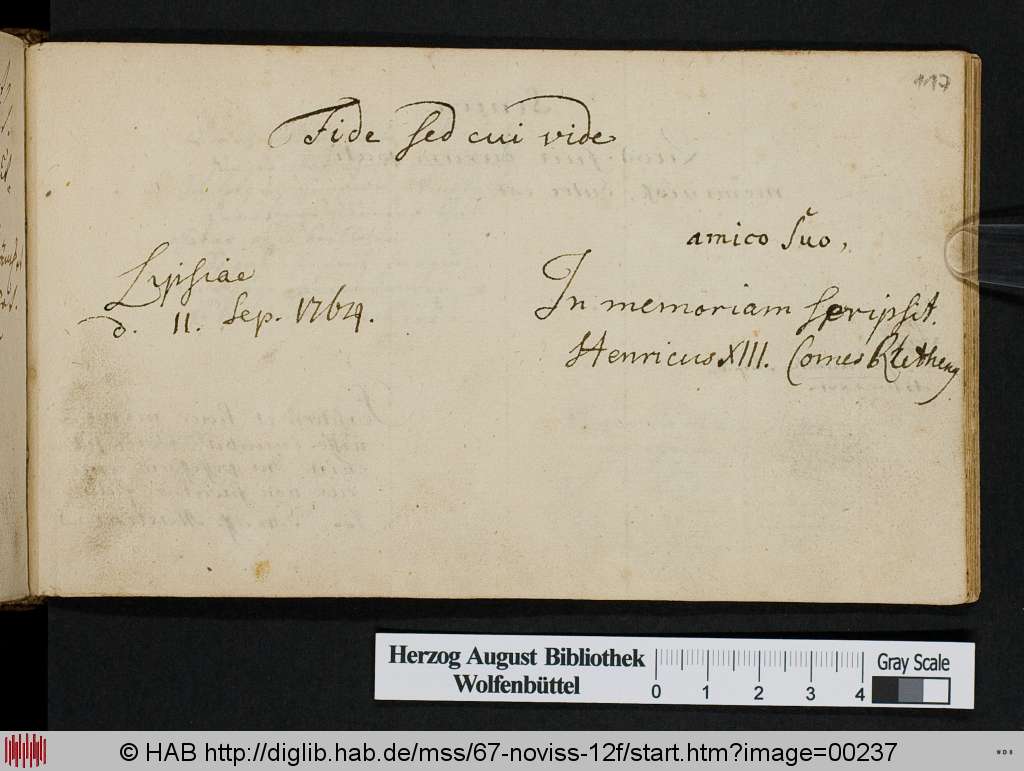 117
Fide sed cui vide
amico suo,
Lipsiae
d. 11. Sep. 1764.
In memoriam scripsit.
Henricus XIII. Comes
Herzog August Bibliothek
Wolfenbüttel
0 1 2 3 4
Gray Scale
© HAB http://diglib.hab.de/mss/67-noviss-12f/start.htm?image=00237
WDB